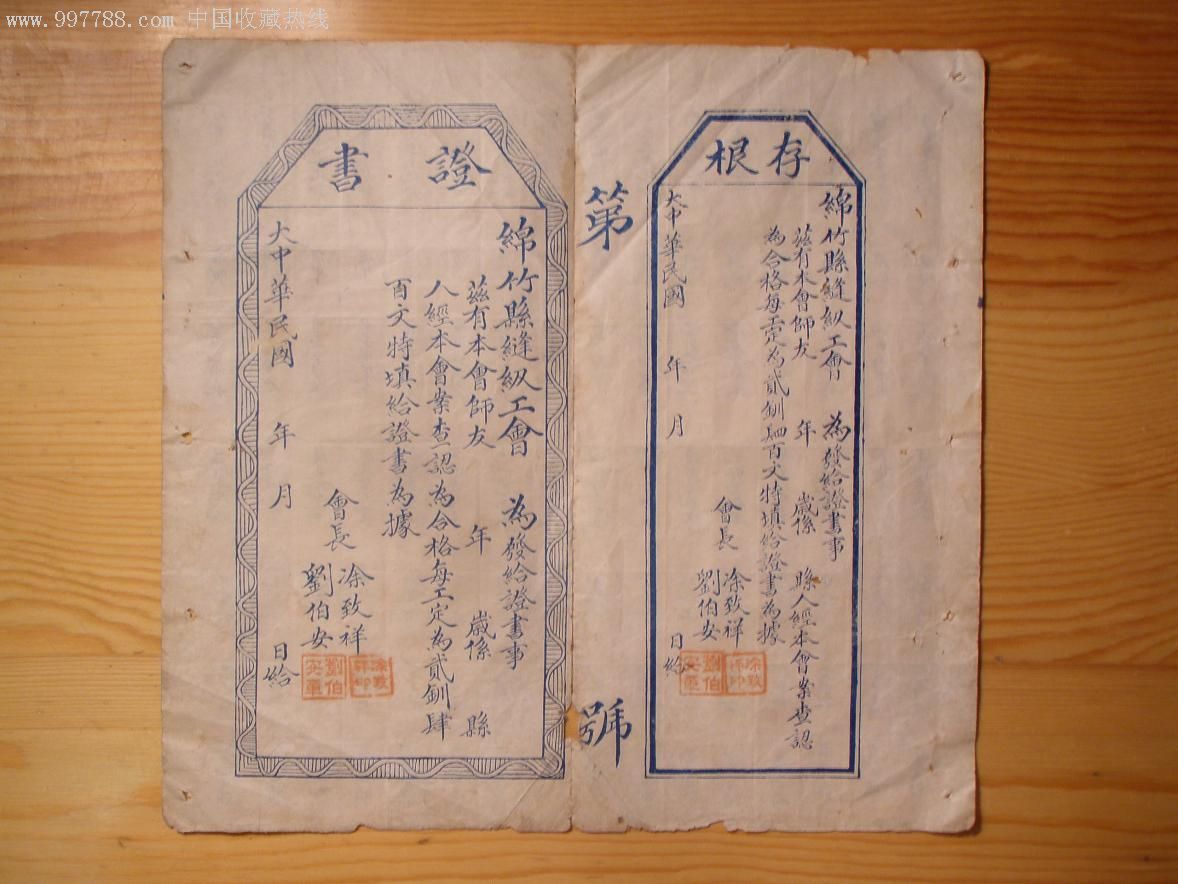 www.997788.com 中国收藏热线
存根
綿竹縣縫紉工會 為發給證書事
茲有本會師友 年 歲係 縣人經本會案查認
為合格每工定為貳釧肆百文特填給證書為據
會長 凃致祥
劉伯安
大中華民國 年 月 日給
凃致祥印
劉伯安章
第 號
證書
綿竹縣縫紉工會 為發給證書事
茲有本會師友 年 歲係 縣
人經本會案查認為合格每工定為貳釧肆
百文特填給證書為據
會長 凃致祥
劉伯安
大中華民國 年 月 日給
凃致祥印
劉伯安章